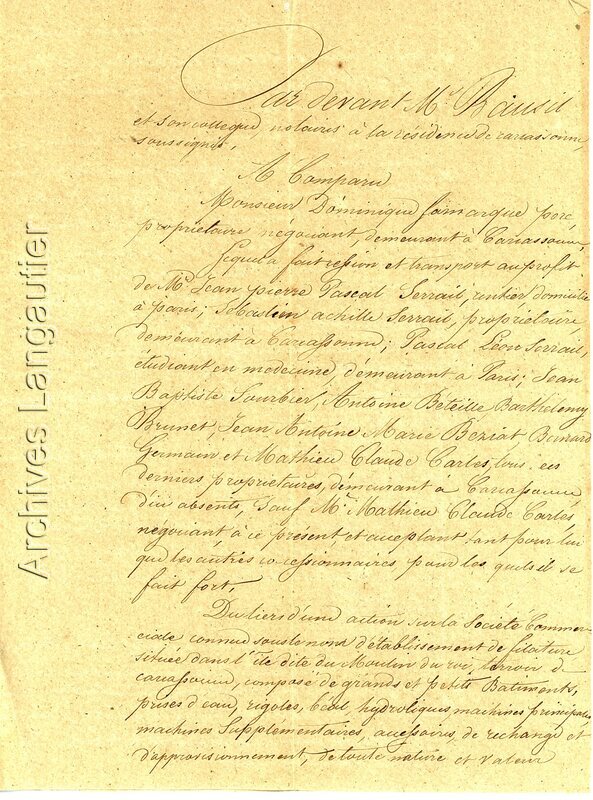 Par devant Me Rausil
et son collegue, notaires à la résidence de carcassonne,
soussignés,
A Comparu
Monsieur Dominique Jamarque père
propriétaire négociant, demeurant à Carcassonne,
Lequel a fait cession et transport au profit
de Mr Jean pierre Pascal Serrail, rentier domicilié
à paris; Sébastien achille Serrail, propriétaire
demeurant à Carcassonne; Pascal Léon Serrail,
étudiant en medecine demeurant à Paris; Jean
Baptiste Sourbier; Antoine Béteille Barthélemy
Brunet, Jean Antoine Marie Béziat Bernard
Germain et Mathieu Claude Carles, tous ces
derniers propriétaires, demeurant à Carcassonne
d'ici absents, Sauf Mr Mathieu Claude Carles,
négociant à ce présent et acceptant tant pour lui
que les autres cessionnaires, pour les quels il se
fait fort,
Du tiers d'une action sur la Société Commer-
ciale connue sous le nom d'établissement de filature
située dans l'île dite du Moulin du roi, terroir de
carcassonne, composé de grands et petits Batiments,
prises d'eau, rigoles, béal, hydroliques machines principales
machines Supplémentaires, accessoires, de rechange et
d'approvisionnement, de toute nature et valeur
Archives Langautier